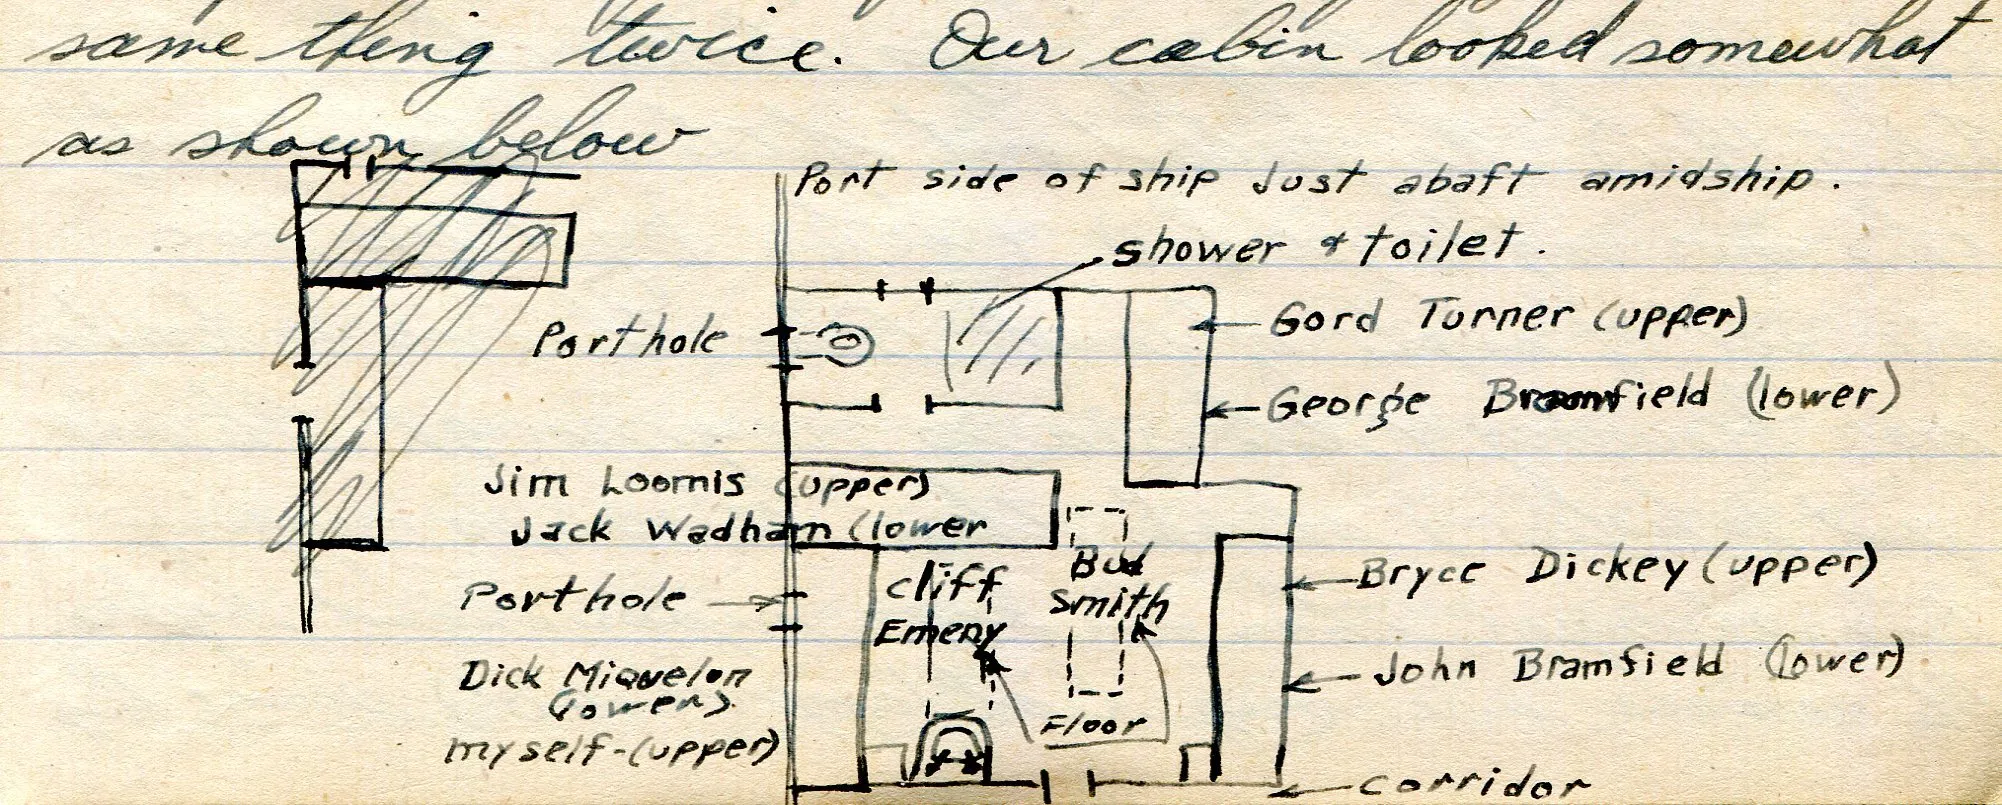 same thing twice. Our cabin looked somewhat
as shown below
Port side of ship Just abaft amidship.
shower & toilet.
Porthole
Gord Turner (upper)
George Bramfield (lower)
Jim Loomis (upper)
Jack Wadham (lower
Cliff
Emery
Bud
Smith
Bryce Dickey (upper)
Porthole
John Bramfield (lower)
Dick Miquelon
(lower)
Floor
myself-(upper)
corridor